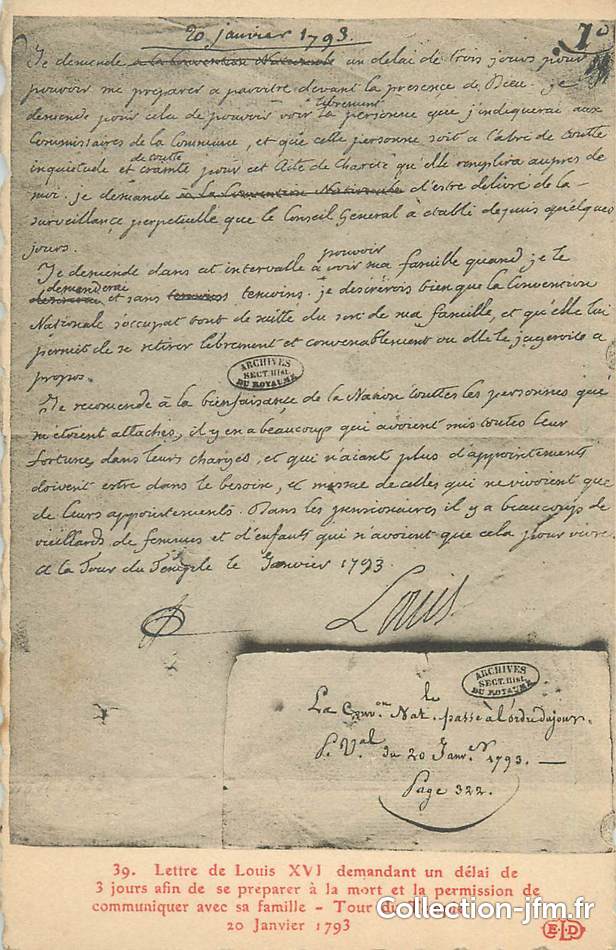 20 janvier 1793.
7º
Je demande a la Convention Nationale un delai de trois jours pour
pouvoir me preparer a paroitre devant la presence de Dieu. je
demande pour cela de pouvoir voir librement la personne que j'indiquerai aux
Commissaires de la Commune, et que cette personne soit a l'abri de toutte
inquietude et de toutte crainte pour cet Acte de charité qu'elle remplira aupres de
moi. je demande a la Convention Nationale d'estre délivré de la
surveillance perpetuelle que le Conseil General à établi depuis quelques
jours.
Je demande dans cet intervalle a pouvoir voir ma famille quand je le
demanderai et sans temoins temoins. je désirerois bien que la Convention
Nationale s'occupat tout de suitte du sort de ma famille, et qu'elle lui
permit de se retirer librement et convenablement ou elle le jugeroit a
propos.
ARCHIVES
SECT. HIST.
DU ROYAUME
Je recomende à la bienfaisance de la Nation touttes les personnes qui
m'étoient attachés, il y en a beaucoup qui avoient mis toutes leur
fortune, dans leurs charges, et qui n'aiant plus d'appointements
doivent estre dans le besoin, et mesme de celles qui ne vivoient que
de leurs appointements. Dans les pensionaires il y a beaucoup de
vieillards, de femmes et d'enfants qui n'avoient que cela pour vivre.
A la Tour du Temple le Janvier 1793.
Louis
ARCHIVES
SECT. HIST.
DU ROYAUME
La Conv.on Nat. passe à l'ordre du jour.
P. V.al du 20 Janv.er 1793. —
Page 322.
39. Lettre de Louis XVI demandant un délai de
3 jours afin de se preparer à la mort et la permission de
communiquer avec sa famille - Tour du Temple
20 Janvier 1793
E.L.D
Collection-jfm.fr